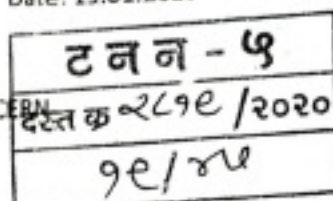 Date:
ट न न - ५
CERN दस्त क्र २८१९ /२०२०
१९/४५